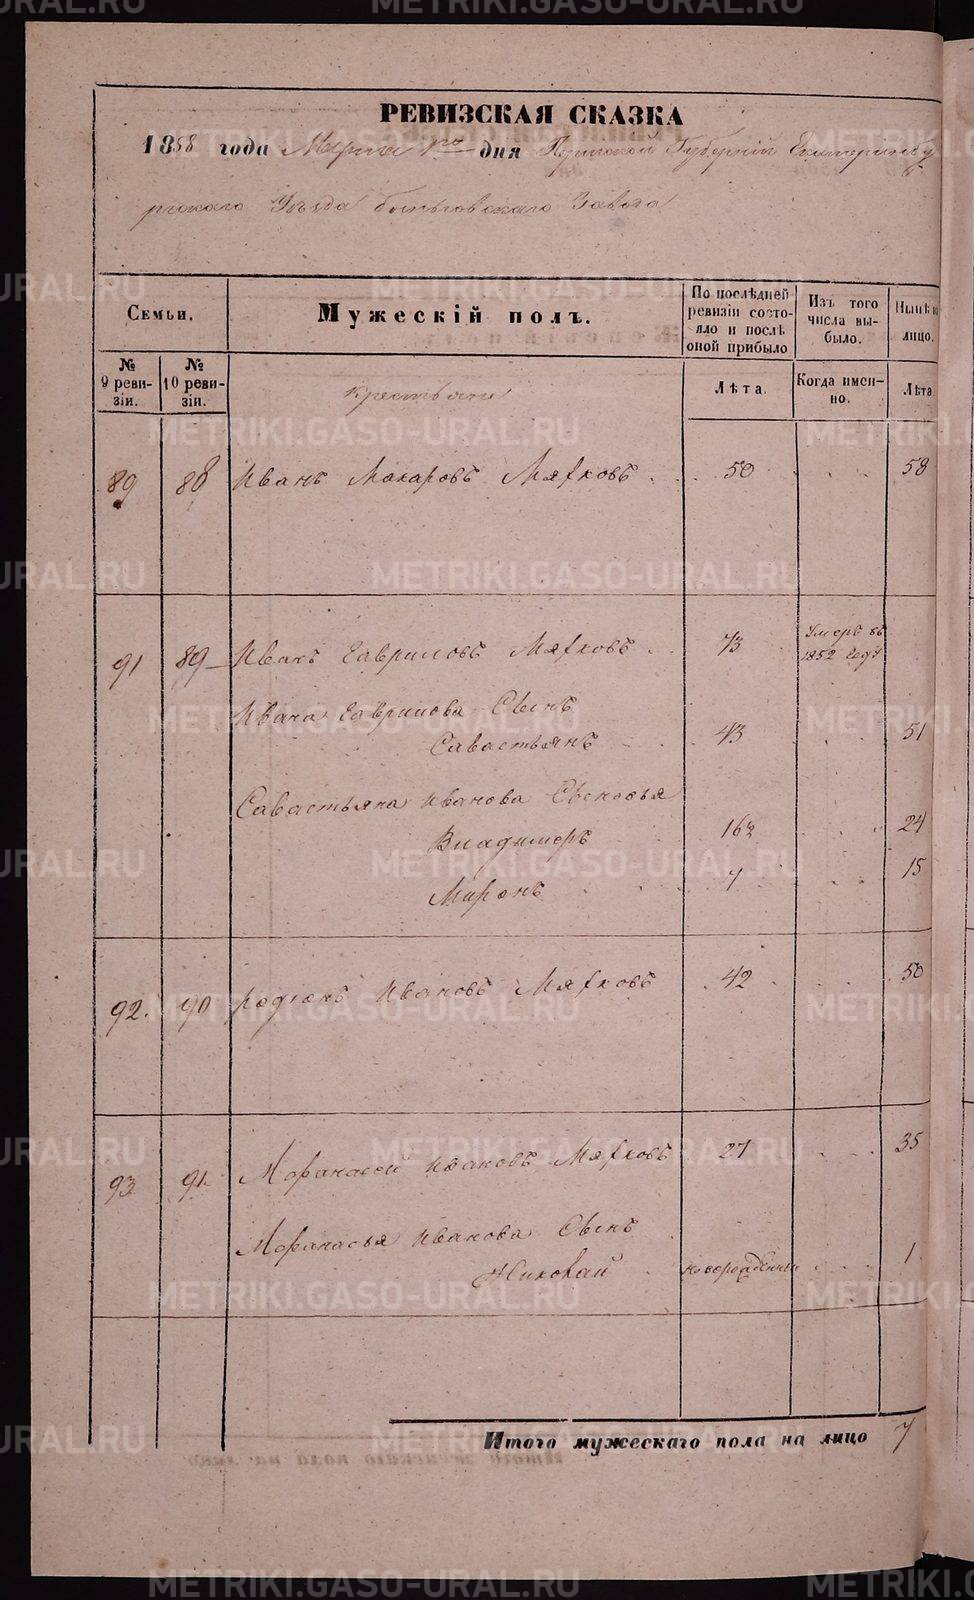 РЕВИЗСКАЯ СКАЗКА
1858 года Марта 1го дня Пермской Губерніи Екатеринбу
ргскаго Уѣзда Быньговскаго Завода
Семьи.
Мужескій полъ.
По послѣдней ревизіи состо-
яло и послѣ
оной прибыло
Изъ того
числа вы-
было.
Нынѣ
лицо.
№ 9 реви-
зіи.
№ 10 реви-
зіи.
Крестьяне
Лѣта.
Когда имен-
но.
Лѣта
89 88 Иванъ Макаровъ Мяхковъ 50 58
91 89 Иванъ Гавриловъ Мяхковъ 73 Умеръ въ
1852 году
Ивана Гаврилова Сынъ
Савастьянъ 43 51
Савастьяна Иванова Сыновья
Владимеръ 16½ 24
Миронъ 7 15
92. 90 Родіонъ Ивановъ Мяхковъ 42 50
93 91. Афанасей Ивановъ Мяхковъ 27 35
Афанасья Иванова Сынъ
Николай новорожденный 1
Итого мужескаго пола на лицо 7
METRIKI.GASO-URAL.RU